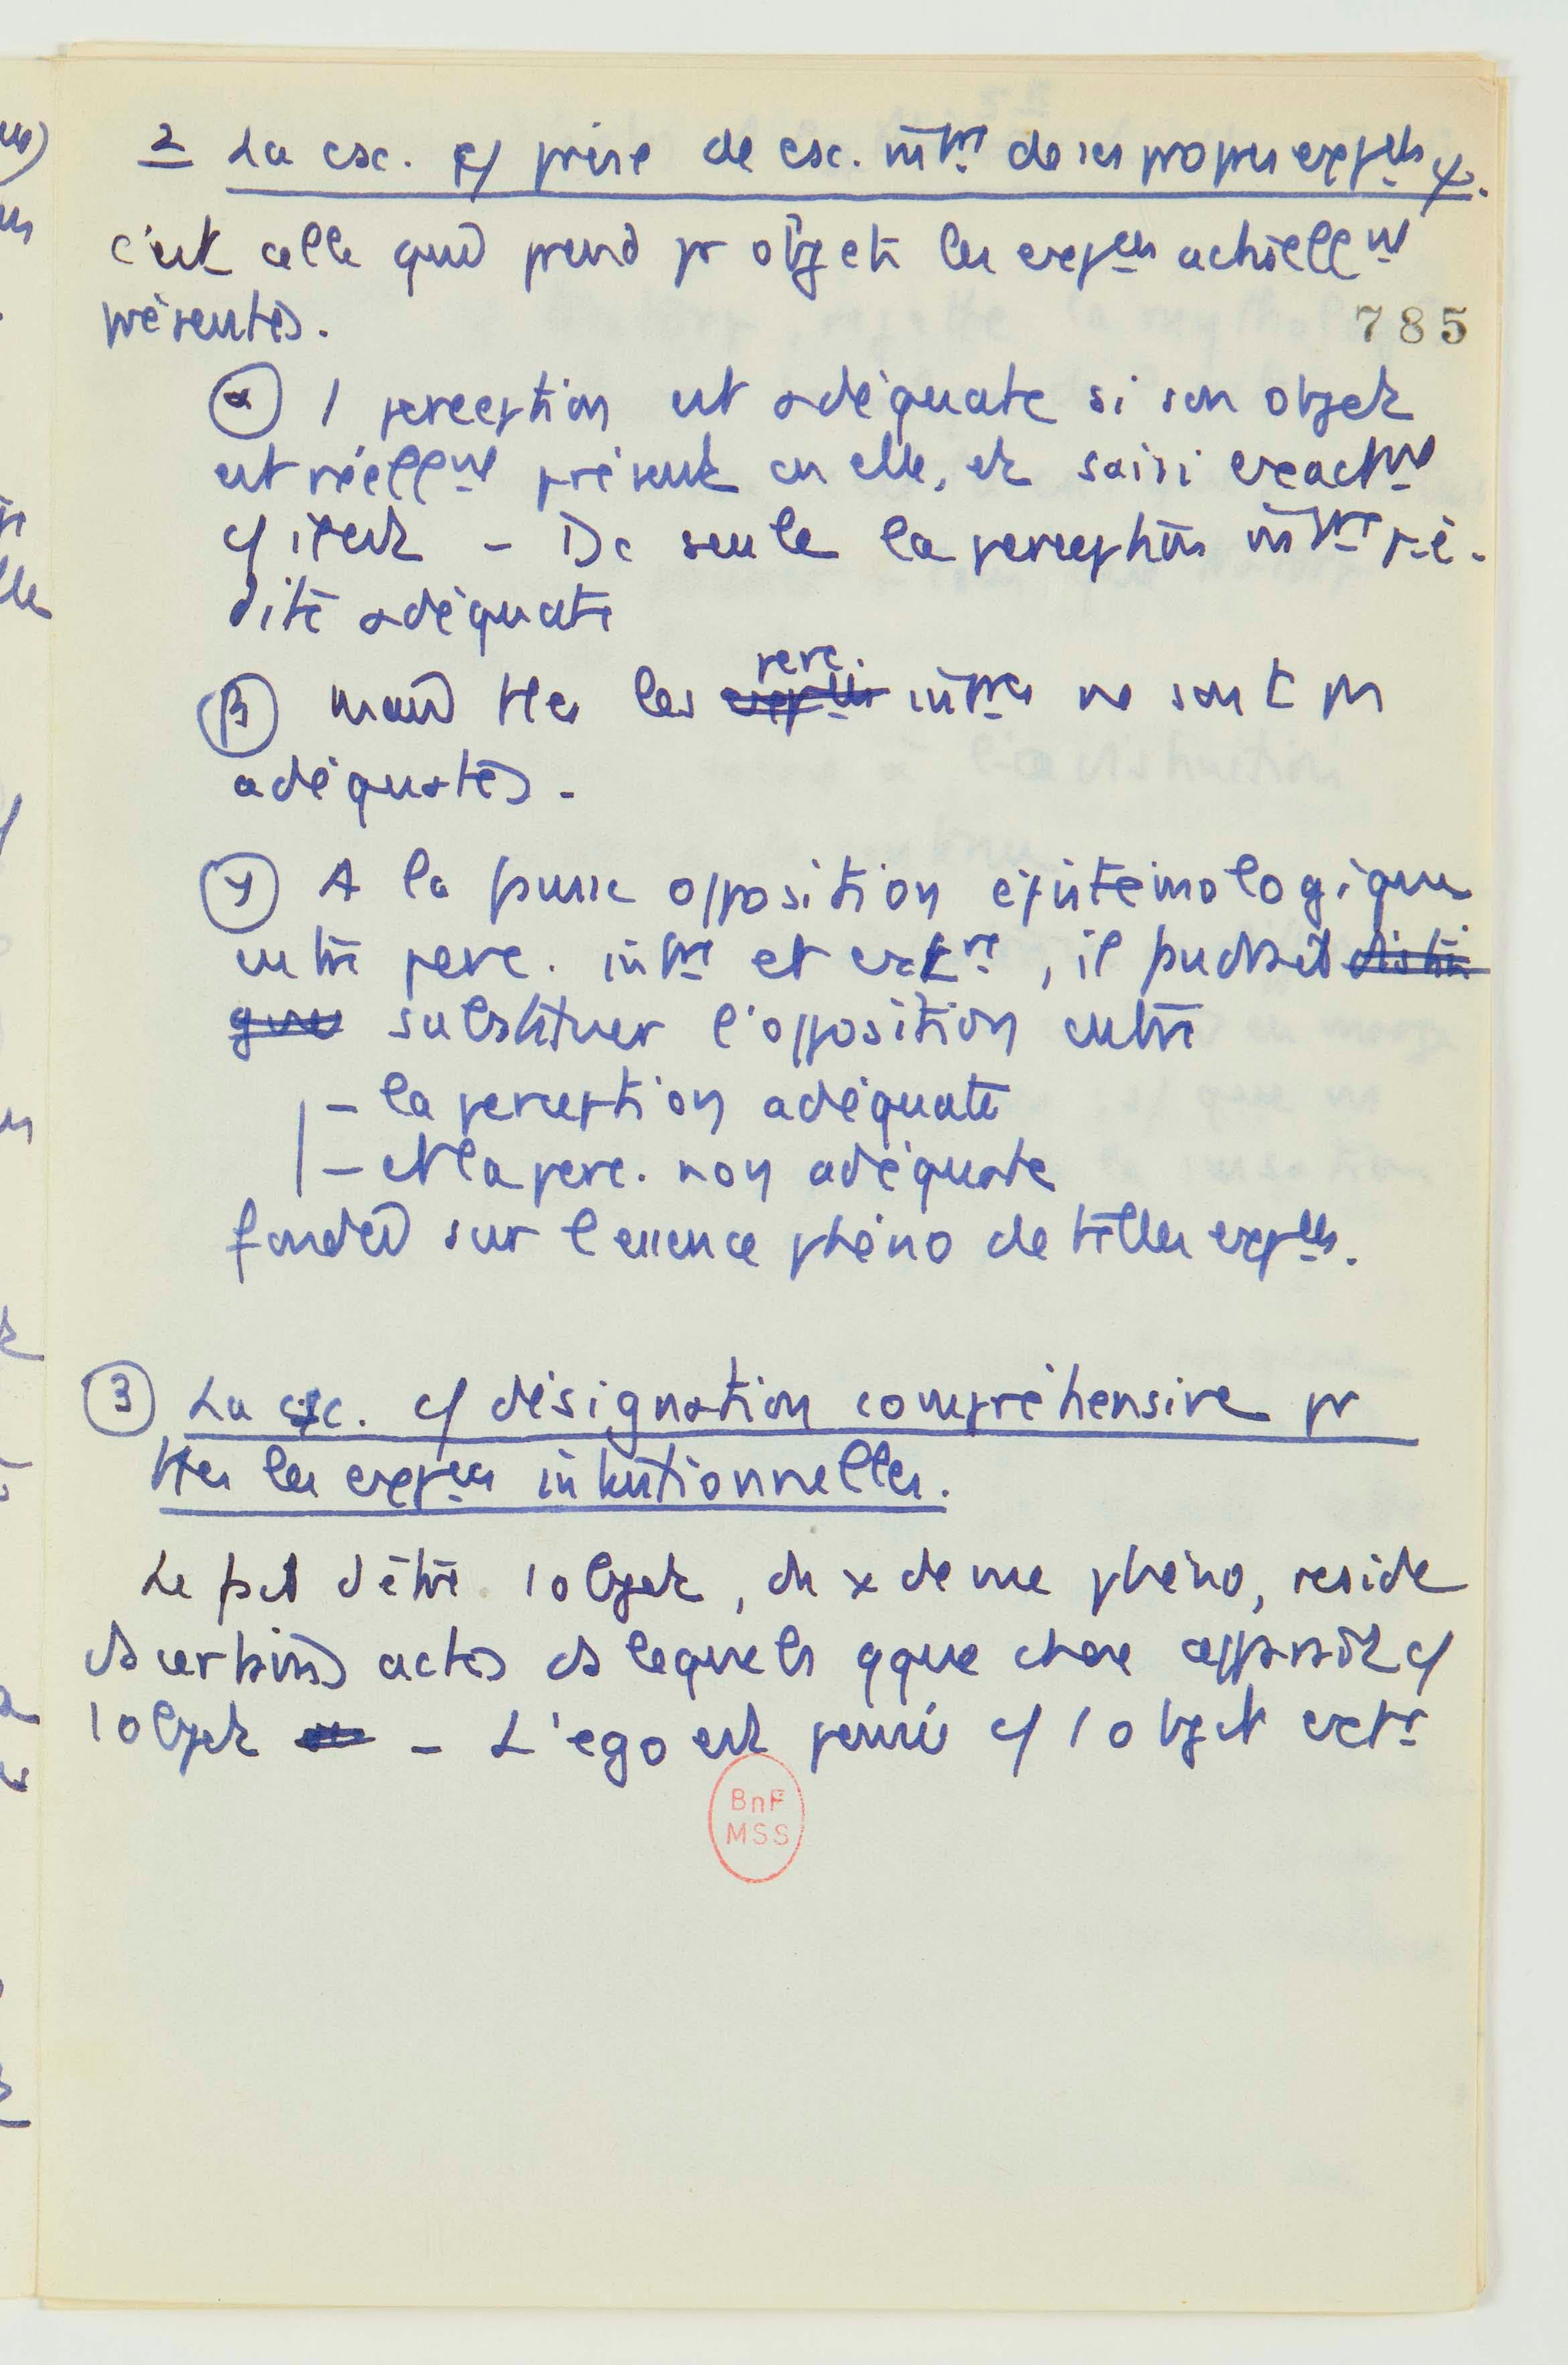 2 La csc. c/ prise de csc. intre de ses propres expces ψ.
c'est celle qui prend pr objet les expces actuellemt
présentes.
785
α 1 perception est adéquate si son objet
est réellemt présent en elle, et saisi exactmt
c/ il est - Dc seule la perception intre pé-
dité adéquate
β mais ttes les perc. intres ne sont pas
adéquates.
γ A la pure opposition épistémologique
entre perc. intre et extre, il faudrait distin
guer substituer l'opposition entre
- la perception adéquate
- et la perc. non adéquate
fondée sur l'essence phéno de telles expces.
3 La csc. c/ désignation compréhensive pr
ttes les expces intentionnelles.
Le fait d'être 1 objet, du x de vue phéno, reside
ds certains actes ds lesquels qque chose apparaît c/
1 objet - L'ego est perçu c/ 1 objet extr
BnF
MSS